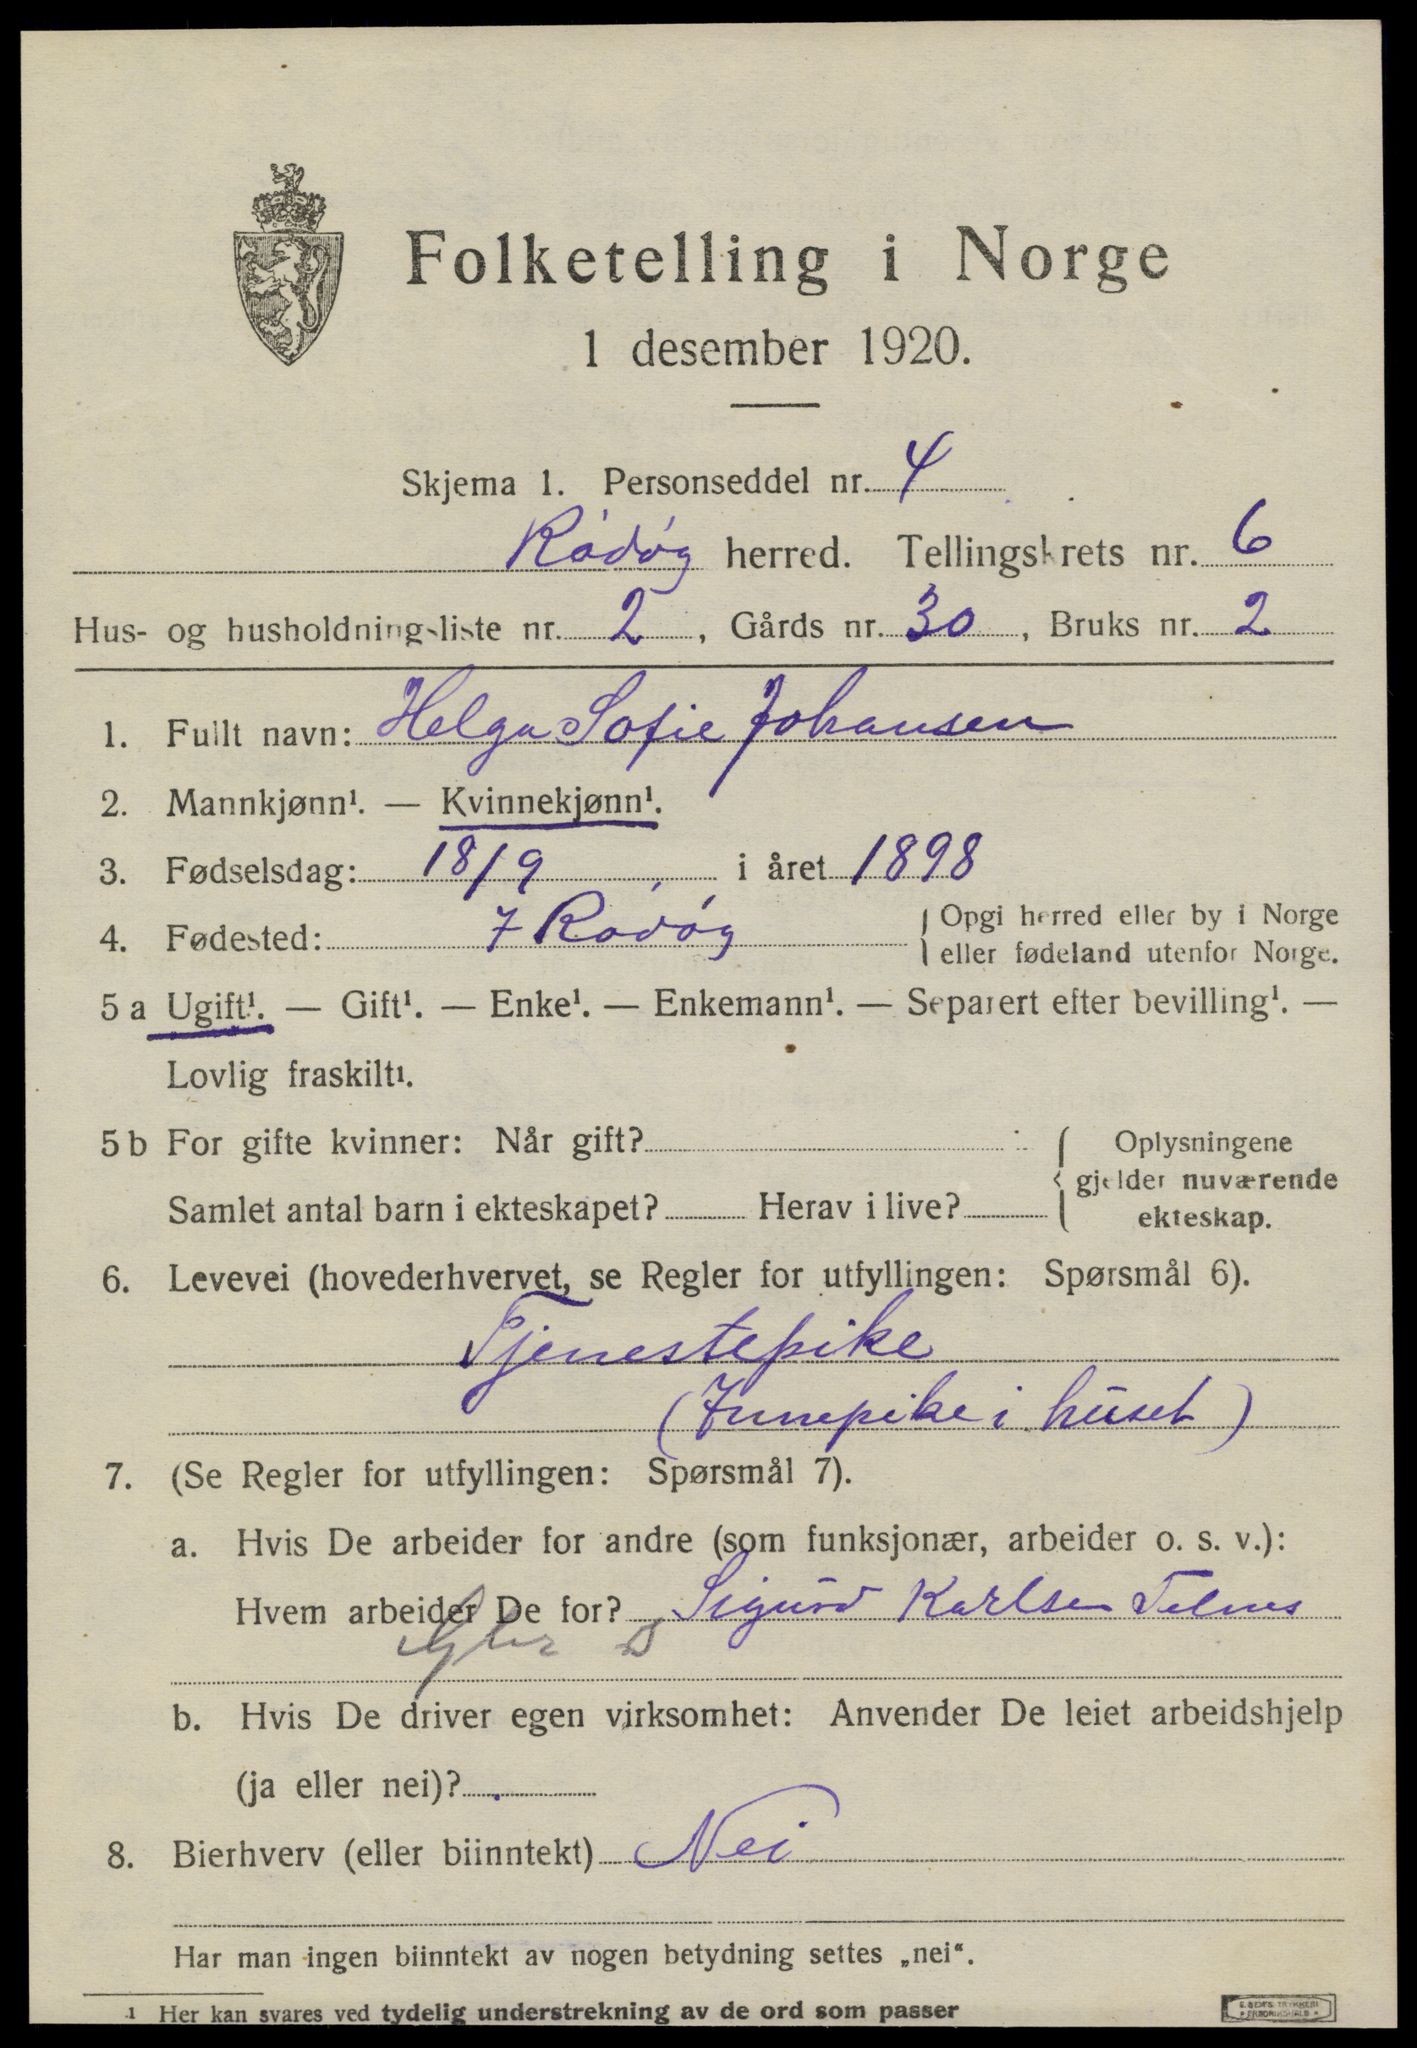 Folketelling i Norge
1 desember 1920.
Skjema 1. Personseddel nr. 4
Rödög herred. Tellingskrets nr. 6
Hus- og husholdningsliste nr. 2, Gårds nr. 30, Bruks nr. 2
1. Fullt navn: Helga Sofie Johansen
2. Mannkjønn¹. — Kvinnekjønn¹.
3. Fødselsdag: 18/9 i året 1898
4. Fødested: I Rödög { Opgi herred eller by i Norge
eller fødeland utenfor Norge.
5 a Ugift¹. — Gift¹. — Enke¹. — Enkemann¹. — Separert efter bevilling¹. —
Lovlig fraskilt¹.
5 b For gifte kvinner: Når gift?
Samlet antal barn i ekteskapet? Herav i live?
{ Oplysningene
gjelder nuværende
ekteskap.
6. Levevei (hovederhvervet, se Regler for utfyllingen: Spørsmål 6).
Tjenestepike
(Innepike i huset)
7. (Se Regler for utfyllingen: Spørsmål 7).
a. Hvis De arbeider for andre (som funksjonær, arbeider o. s. v.):
Hvem arbeider De for? Sigurd Karlsen Telnes
b. Hvis De driver egen virksomhet: Anvender De leiet arbeidshjelp
(ja eller nei)?
8. Bierhverv (eller biinntekt) Nei
Har man ingen biinntekt av nogen betydning settes „nei“.
¹ Her kan svares ved tydelig understrekning av de ord som passer